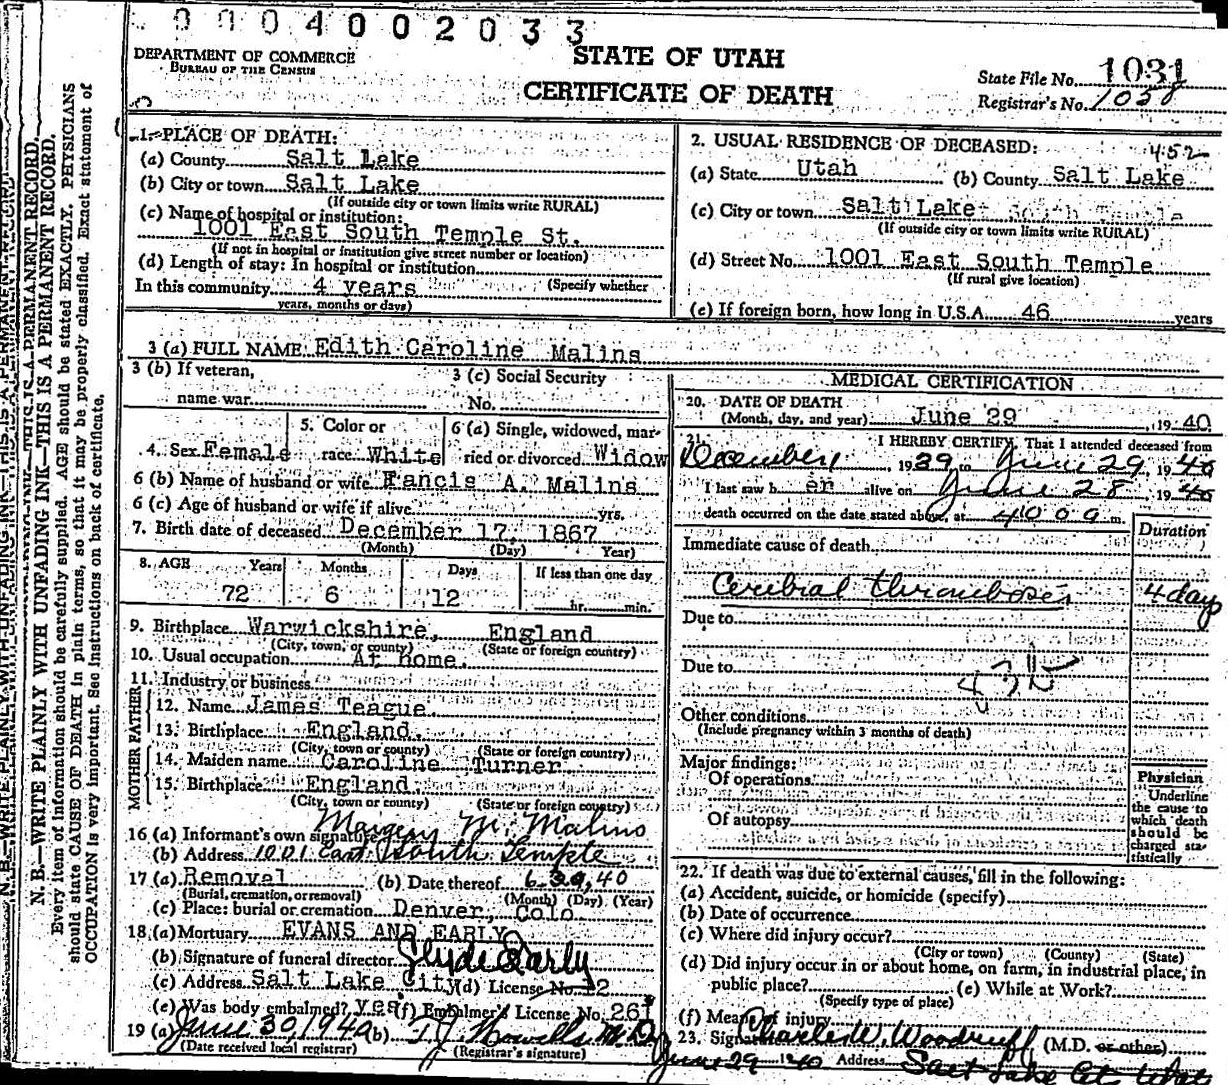 0004002033
DEPARTMENT OF COMMERCE
BUREAU OF THE CENSUS
STATE OF UTAH
CERTIFICATE OF DEATH
State File No. 1031
Registrar's No. 1028
1. PLACE OF DEATH:
(a) County Salt Lake
(b) City or town Salt Lake
(If outside city or town limits write RURAL)
(c) Name of hospital or institution:
1001 East South Temple St.
(If not in hospital or institution give street number or location)
(d) Length of stay: In hospital or institution
In this community 4 years (Specify whether
years, months or days)
2. USUAL RESIDENCE OF DECEASED: 452
(a) State Utah (b) County Salt Lake
(c) City or town Salt Lake
(If outside city or town limits write RURAL)
(d) Street No. 1001 East South Temple
(If rural give location)
(e) If foreign born, how long in U.S.A. 46 years
3 (a) FULL NAME Edith Caroline Malins
3 (b) If veteran,
name war
3 (c) Social Security
No.
4. Sex Female
5. Color or
race White
6 (a) Single, widowed, mar-
ried or divorced Widow
6 (b) Name of husband or wife Francis A. Malins
6 (c) Age of husband or wife if alive yrs.
7. Birth date of deceased December 17, 1867
(Month) (Day) Year)
8. AGE Years Months Days If less than one day
72 6 12 hr. min.
9. Birthplace Warwickshire, England
(City, town, or county) (State or foreign country)
10. Usual occupation At home.
11. Industry or business
FATHER
12. Name James Teague
13. Birthplace England
(City, town or county) (State or foreign country)
MOTHER
14. Maiden name Caroline Turner
15. Birthplace England
(City, town or county) (State or foreign country)
16 (a) Informant's own signature M. Malins
(b) Address 1001 East South Temple
17 (a) Removal (b) Date thereof 6 40
(Burial, cremation, or removal) (Month) (Day) (Year)
(c) Place: burial or cremation Denver, Colo
18 (a) Mortuary EVANS AND EARLY
(b) Signature of funeral director Clyde Early
(c) Address Salt Lake City (d) License No. 12
(e) Was body embalmed? yes (f) Embalmer's License No. 261
19 (a) June 30, 1940 (b) T.J. Howells M.D.
(Date received local registrar) (Registrar's signature)
MEDICAL CERTIFICATION
20. DATE OF DEATH
(Month, day, and year) June 29 , 19 40
21. I HEREBY CERTIFY, That I attended deceased from
December 1939 to June 29, 1940
I last saw her alive on June 28 1940
death occurred on the date stated above, at 400 a m.
Duration
Immediate cause of death
Cerebral thrombosis 4 days
Due to
Due to
Other conditions
(Include pregnancy within 3 months of death)
Major findings:
Of operations
Of autopsy
Physician
Underline
the cause to
which death
should be
charged sta-
tistically
22. If death was due to external causes, fill in the following:
(a) Accident, suicide, or homicide (specify)
(b) Date of occurrence
(c) Where did injury occur?
(City or town) (County) (State)
(d) Did injury occur in or about home, on farm, in industrial place, in
public place? (e) While at Work?
(Specify type of place)
(f) Means of injury
23. Signature Charles W. Woodruff (M.D. or other)
June 29 1940 Address Salt Lake City Utah
N. B.—WRITE PLAINLY WITH UNFADING INK—THIS IS A PERMANENT RECORD.
Every item of information should be carefully supplied. AGE should be stated EXACTLY. PHYSICIANS
should state CAUSE OF DEATH in plain terms, so that it may be properly classified. Exact statement of
OCCUPATION is very important. See instructions on back of certificate.